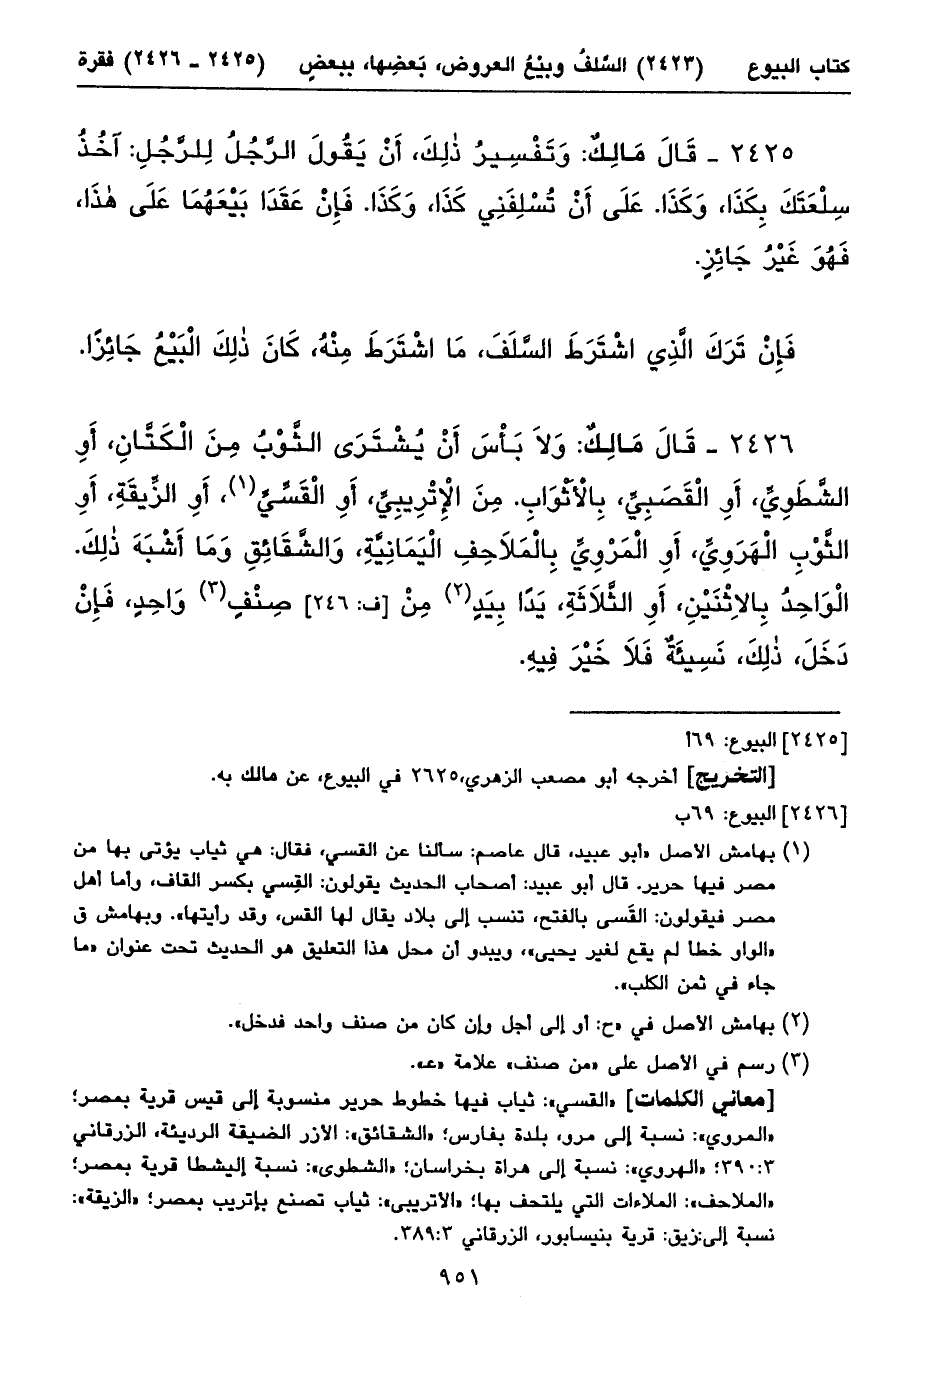 كتاب البيوع (٢٤٢٣) السَّلفُ وبيْعُ العروض، بَعضِها، ببعضٍ (٢٤٢٥ - ٢٤٢٦) فقرة
٢٤٢٥ - قَالَ مَالِكٌ: وَتَفْسِيرُ ذٰلِكَ، أَنْ يَقُولَ الرَّجُلُ لِلرَّجُلِ: آخُذُ
سِلْعَتَكَ بِكَذَا، وَكَذَا. عَلَى أَنْ تُسْلِفَنِي كَذَا، وَكَذَا. فَإِنْ عَقَدَا بَيْعَهُمَا عَلَى هٰذَا،
فَهُوَ غَيْرُ جَائِزٍ.
فَإِنْ تَرَكَ الَّذِي اشْتَرَطَ السَّلَفَ، مَا اشْتَرَطَ مِنْهُ، كَانَ ذٰلِكَ الْبَيْعُ جَائِزًا.
٢٤٢٦ - قَالَ مَالِكٌ: وَلاَ بَأْسَ أَنْ يُشْتَرَى الثَّوْبُ مِنَ الْكَتَّانِ، أَوِ
الشَّطَوِيِّ، أَوِ الْقَصَبِيِّ، بِالْأَثْوَابِ. مِنَ الْإِتْرِيبِيِّ، أَوِ الْقَسِّيِّ(١)، أَوِ الزِّيقَةِ، أَوِ
الثَّوْبِ الْهَرَوِيِّ، أَوِ الْمَرْوِيِّ بِالْمَلَاحِفِ الْيَمَانِيَّةِ، وَالشَّقَائِقِ وَمَا أَشْبَهَ ذٰلِكَ.
الْوَاحِدُ بِالاِثْنَيْنِ، أَوِ الثَّلَاثَةِ، يَدًا بِيَدٍ(٢) مِنْ [ف: ٢٤٦] صِنْفٍ(٣) وَاحِدٍ، فَإِنْ
دَخَلَ، ذٰلِكَ، نَسِيئَةٌ فَلاَ خَيْرَ فِيهِ.
[٢٤٢٥] البيوع: ٦٩أ
[التخريج] أخرجه أبو مصعب الزهري،٢٦٢٥ في البيوع، عن مالك به.
[٢٤٢٦] البيوع: ٦٩ب
(١) بهامش الأصل «أبو عبيد، قال عاصم: سألنا عن القسي، فقال: هي ثياب يؤتى بها من
مصر فيها حرير. قال أبو عبيد: أصحاب الحديث يقولون: القِسي بكسر القاف، وأما أهل
مصر فيقولون: القَسى بالفتح، تنسب إلى بلاد يقال لها القس، وقد رأيتها». وبهامش ق
«الواو خطأ لم يقع لغير يحيى»، ويبدو أن محل هذا التعليق هو الحديث تحت عنوان «ما
جاء في ثمن الكلب».
(٢) بهامش الأصل في «ح: أو إلى أجل وإن كان من صنف واحد فدخل».
(٣) رسم في الأصل على «من صنف» علامة «عـ».
[معاني الكلمات] «القسي»: ثياب فيها خطوط حرير منسوبة إلى قيس قرية بمصر؛
«المروي»: نسبة إلى مرو، بلدة بفارس؛ «الشقائق»: الأزر الضيقة الرديئة، الزرقاني
٣٩٠:٣؛ «الهروي»: نسبة إلى هراة بخراسان؛ «الشطوى»: نسبة إليشطا قرية بمصر؛
«الملاحف»: الملاءات التي يلتحف بها؛ «الأتريبي»: ثياب تصنع بإتريب بمصر؛ «الزيقة»:
نسبة إلى:زيق: قرية بنيسابور، الزرقاني ٣٨٩:٣.
٩٥١